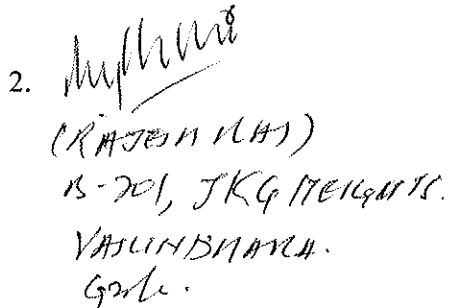 2.
(RAJESH RAI)
B-701, JKG HEIGHTS.
VASUNDHARA.